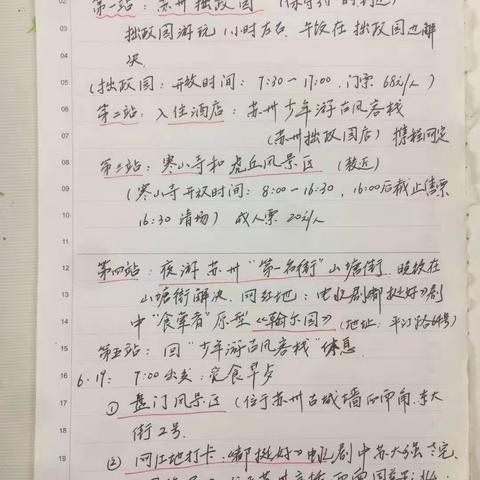 第一站：苏州拙政园
拙政园游玩1小时左右，午饭在拙政园边解
决
（拙政园：开放时间：7:30—17:00，门票68元/人）
第二站：入住酒店：苏州少年游古风客栈
（苏州拙政园店）携程网定
第三站：寒山寺和虎丘风景区（较近）
（寒山寺开放时间：8:00—16:30，16:00后截止售票
16:30清场）成人票20元/人
第四站：夜游苏州“第一名街”山塘街，晚饭在
山塘街解决，网红地：电视剧《都挺好》剧
中“食荤者”原型《翰尔园》（地址：平江路64号）
第五站：回“少年游古风客栈”休息
6.19：7:00出发：觅食早点
① 盘门风景区（位于苏州古城墙西南角，东大
街2号。
② 网红地打卡：《都挺好》电视剧中苏大强
02
03
04
05
06
07
08
09
10
11
12
13
14
15
16
17
18
19